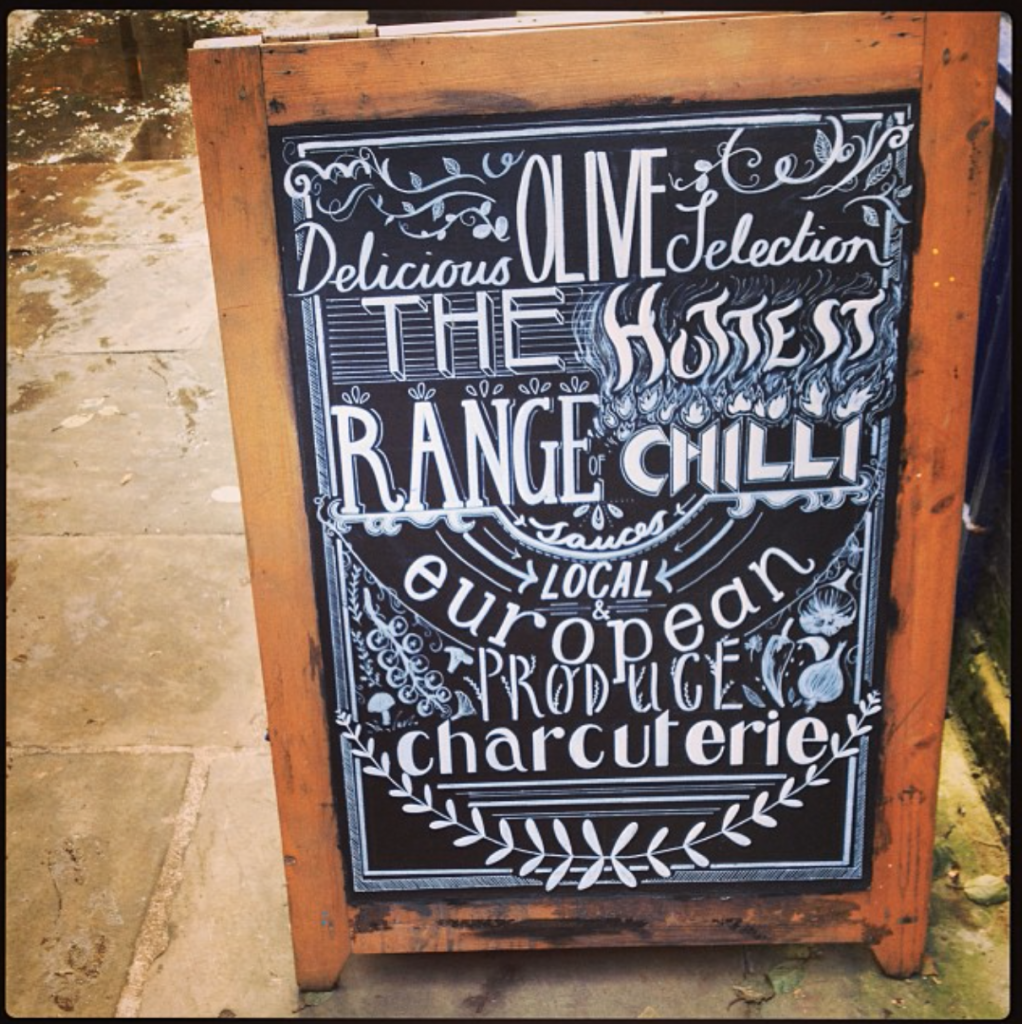 Delicious OLIVE Selection
THE HOTTEST
RANGE OF CHILLI
sauces
LOCAL
&
european
PRODUCE
charcuterie